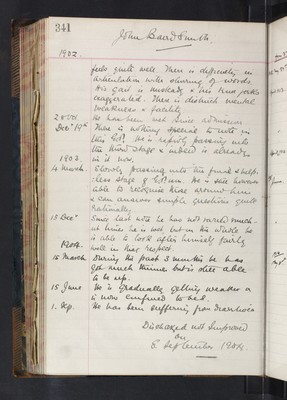 341
John Baird Smith.
1902.
feels quite well. There is difficulty in
articulation with slurring of words.
His gait is unsteady & his knee jerks
exaggerated. There is distinct mental
weakness & facility.
He has been wet since admission
Decr 19th There is nothing special to note in
this G.P. He is rapidly passing into
the third stage & indeed is already
1903. in it now.
4 March. Slowly passing into the final & help-
less stage of G.P. He is still however
able to recognise those around him
& can answer simple questions quite
rationally.
15 Decr Since last note he has not varied much.
At times he is wet, but on the whole he
is able to look after himself fairly
1904. well in that respect.
16 March During the past 3 months he has
got much thinner but is still able
to be up.
15 June. He is gradually getting weaker &
is now confined to bed.
1. Sep. He has been suffering from diarrhoea
Discharged not Improved
on
8. September 1904.